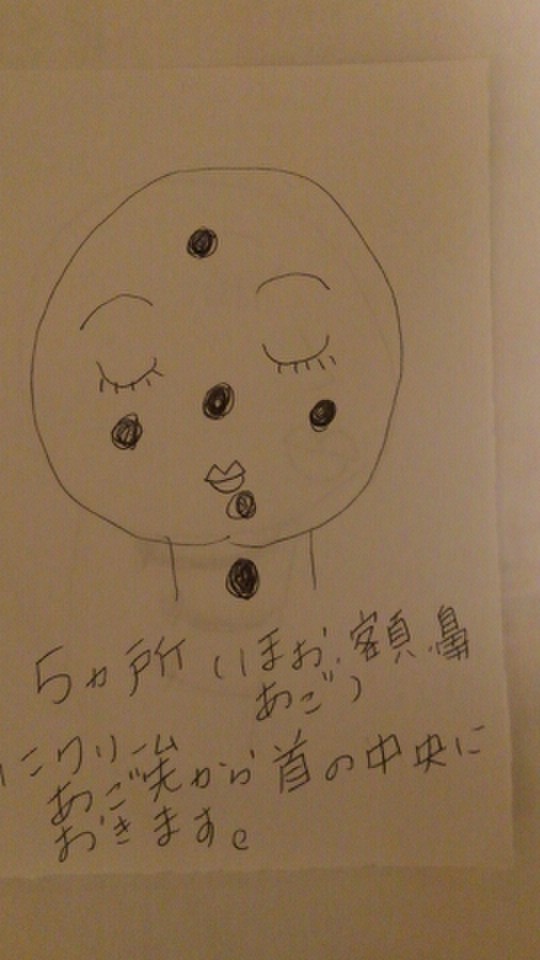 5ヵ所(ほお、額、鼻、
あご)
にクリーム
あご先から首の中央に
おきます。